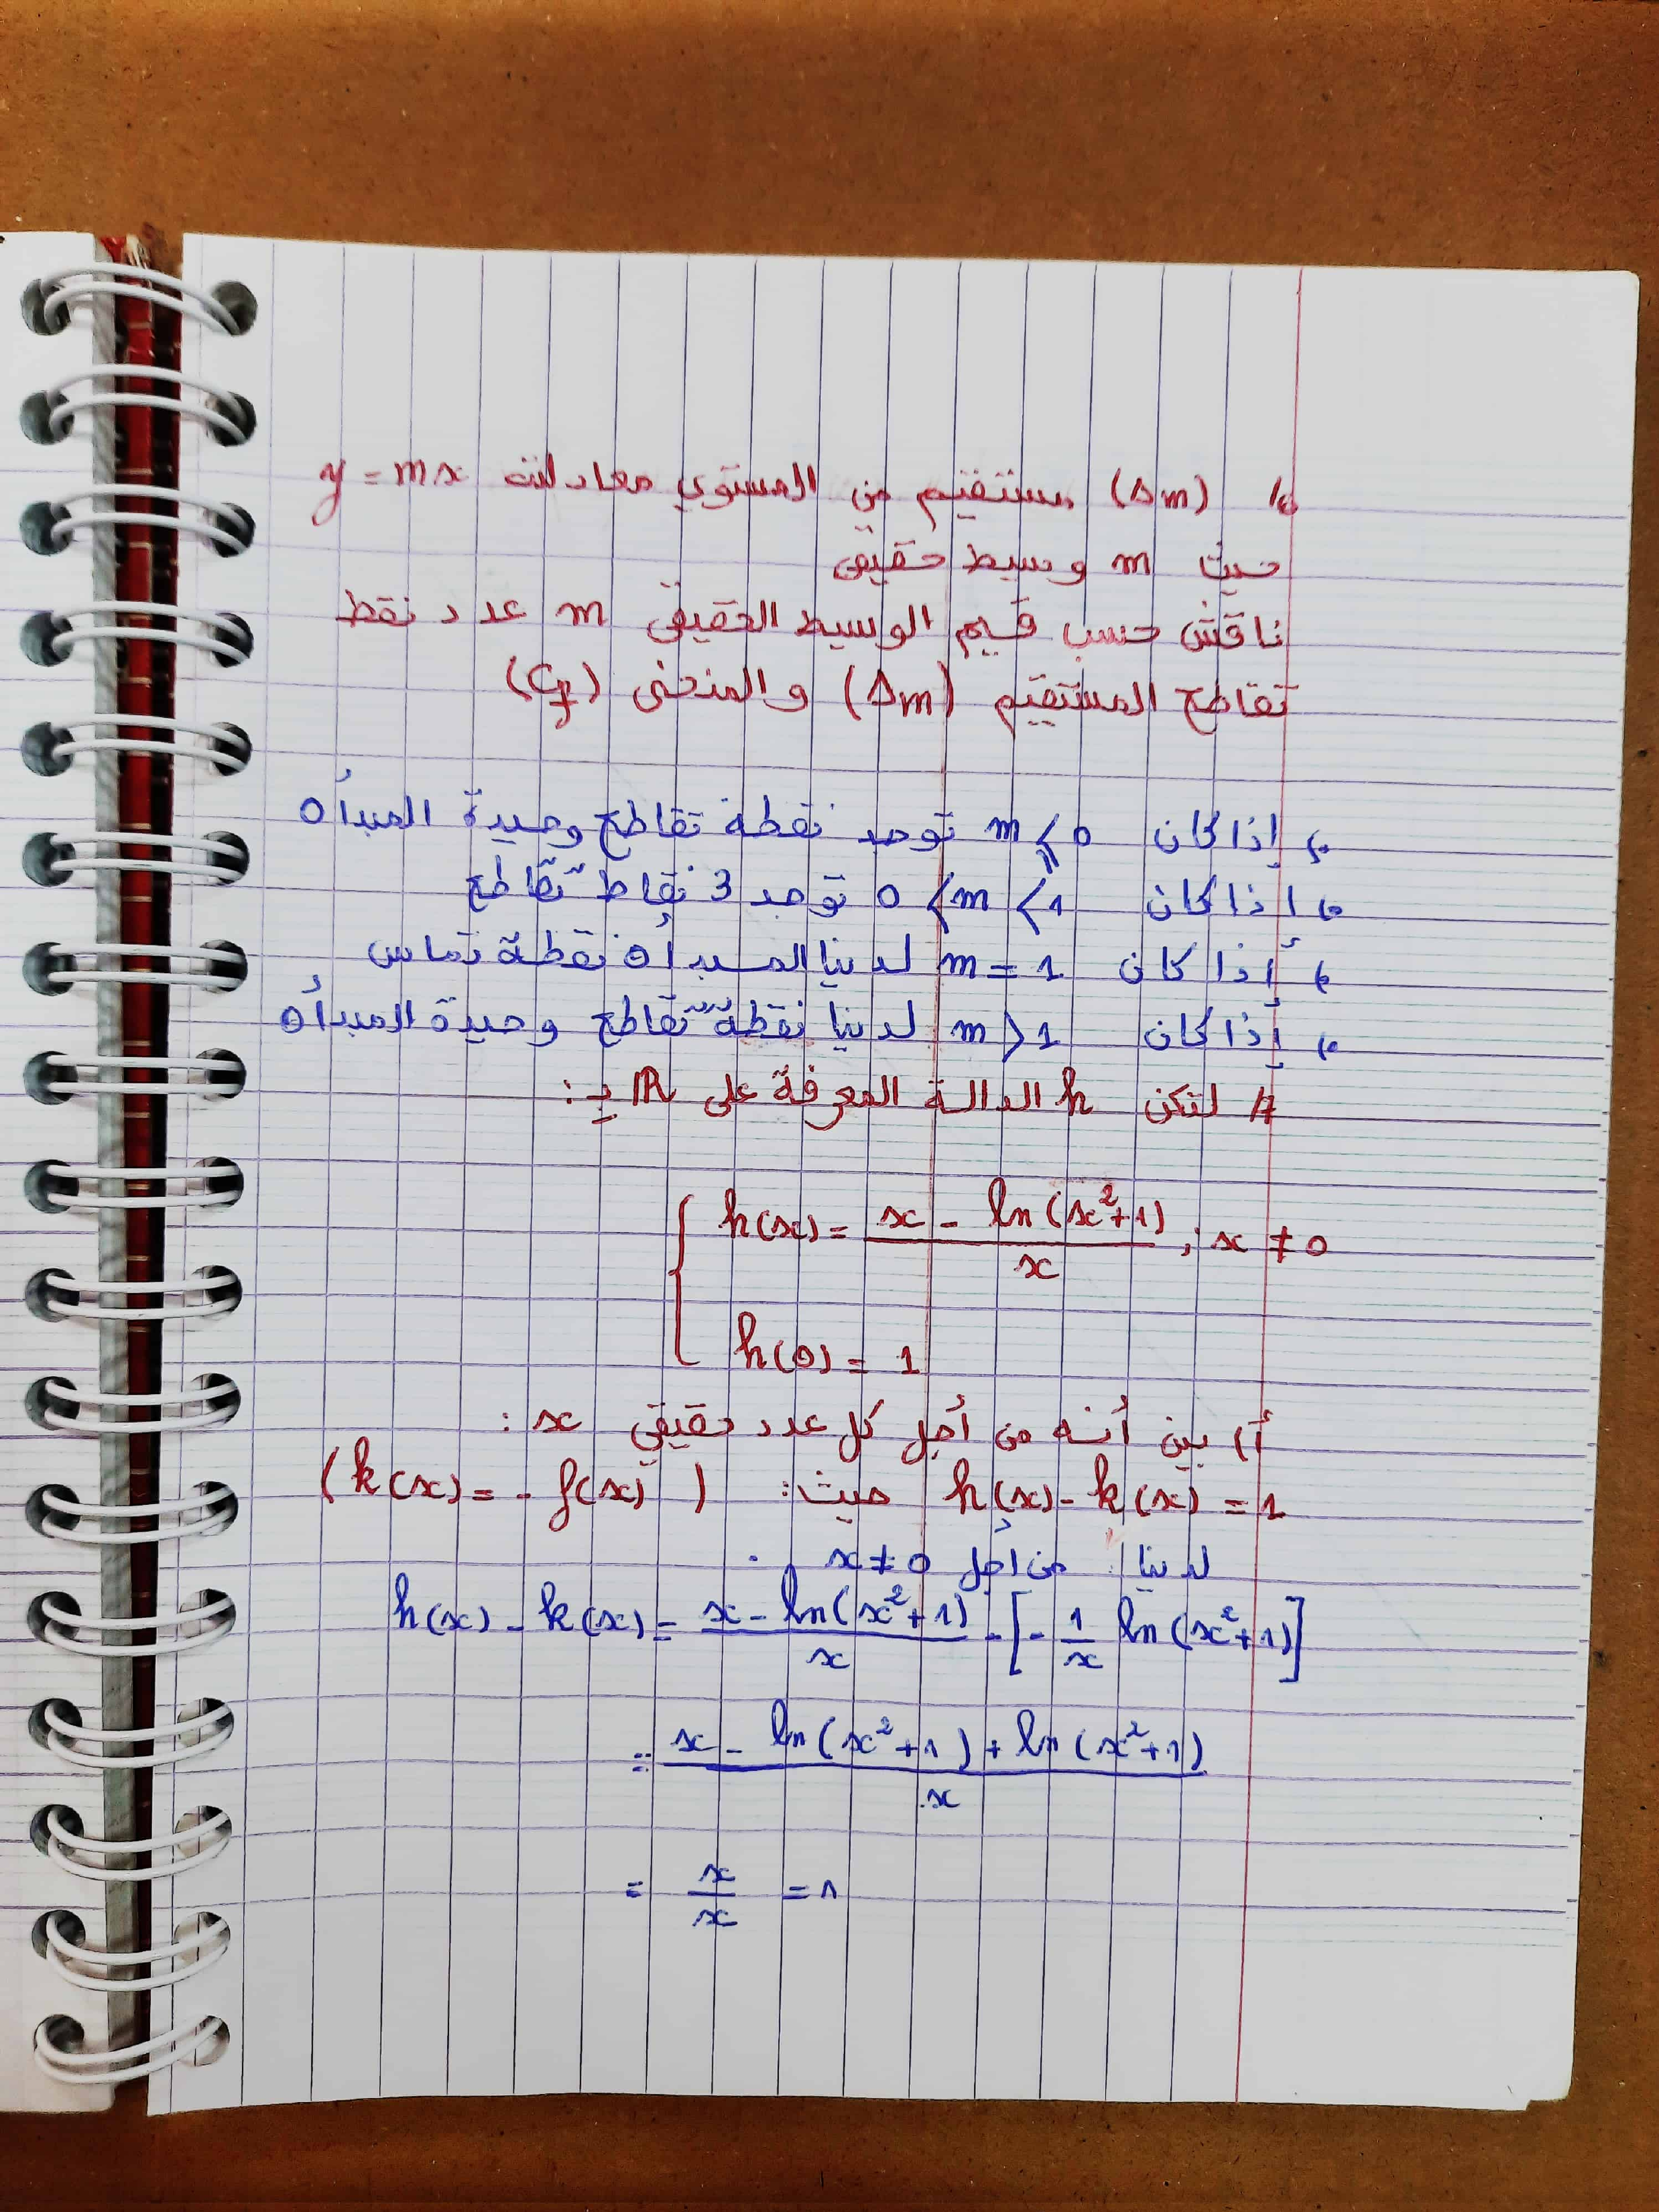 6/ (Δm) مستقيم من المستوي معادلته y = mx
حيث m وسيط حقيقي
ناقش حسب قيم الوسيط الحقيقي m عدد نقط
تقاطع المستقيم (Δm) و المنحنى (Cf)
إذا كان m ⩽ 0 توجد نقطة تقاطع وحيدة المبدأ 0
إذا كان 0 < m < 1 توجد 3 نقاط تقاطع
إذا كان m = 1 لدينا المبدأ 0 نقطة تماس
إذا كان m > 1 لدينا نقطة تقاطع وحيدة المبدأ 0
7/ لتكن h الدالة المعرفة على ℝ بـ:
h(x) = (x - ln(x²+1))/x ; x ≠ 0
h(0) = 1
أ) بين أنه من أجل كل عدد حقيقي x :
h(x) - k(x) = 1 حيث: (k(x) = - f(x))
لدينا من أجل x ≠ 0
h(x) - k(x) = (x - ln(x²+1))/x - [- 1/x ln(x²+1)]
= (x - ln(x²+1) + ln(x²+1))/x
= x/x = 1